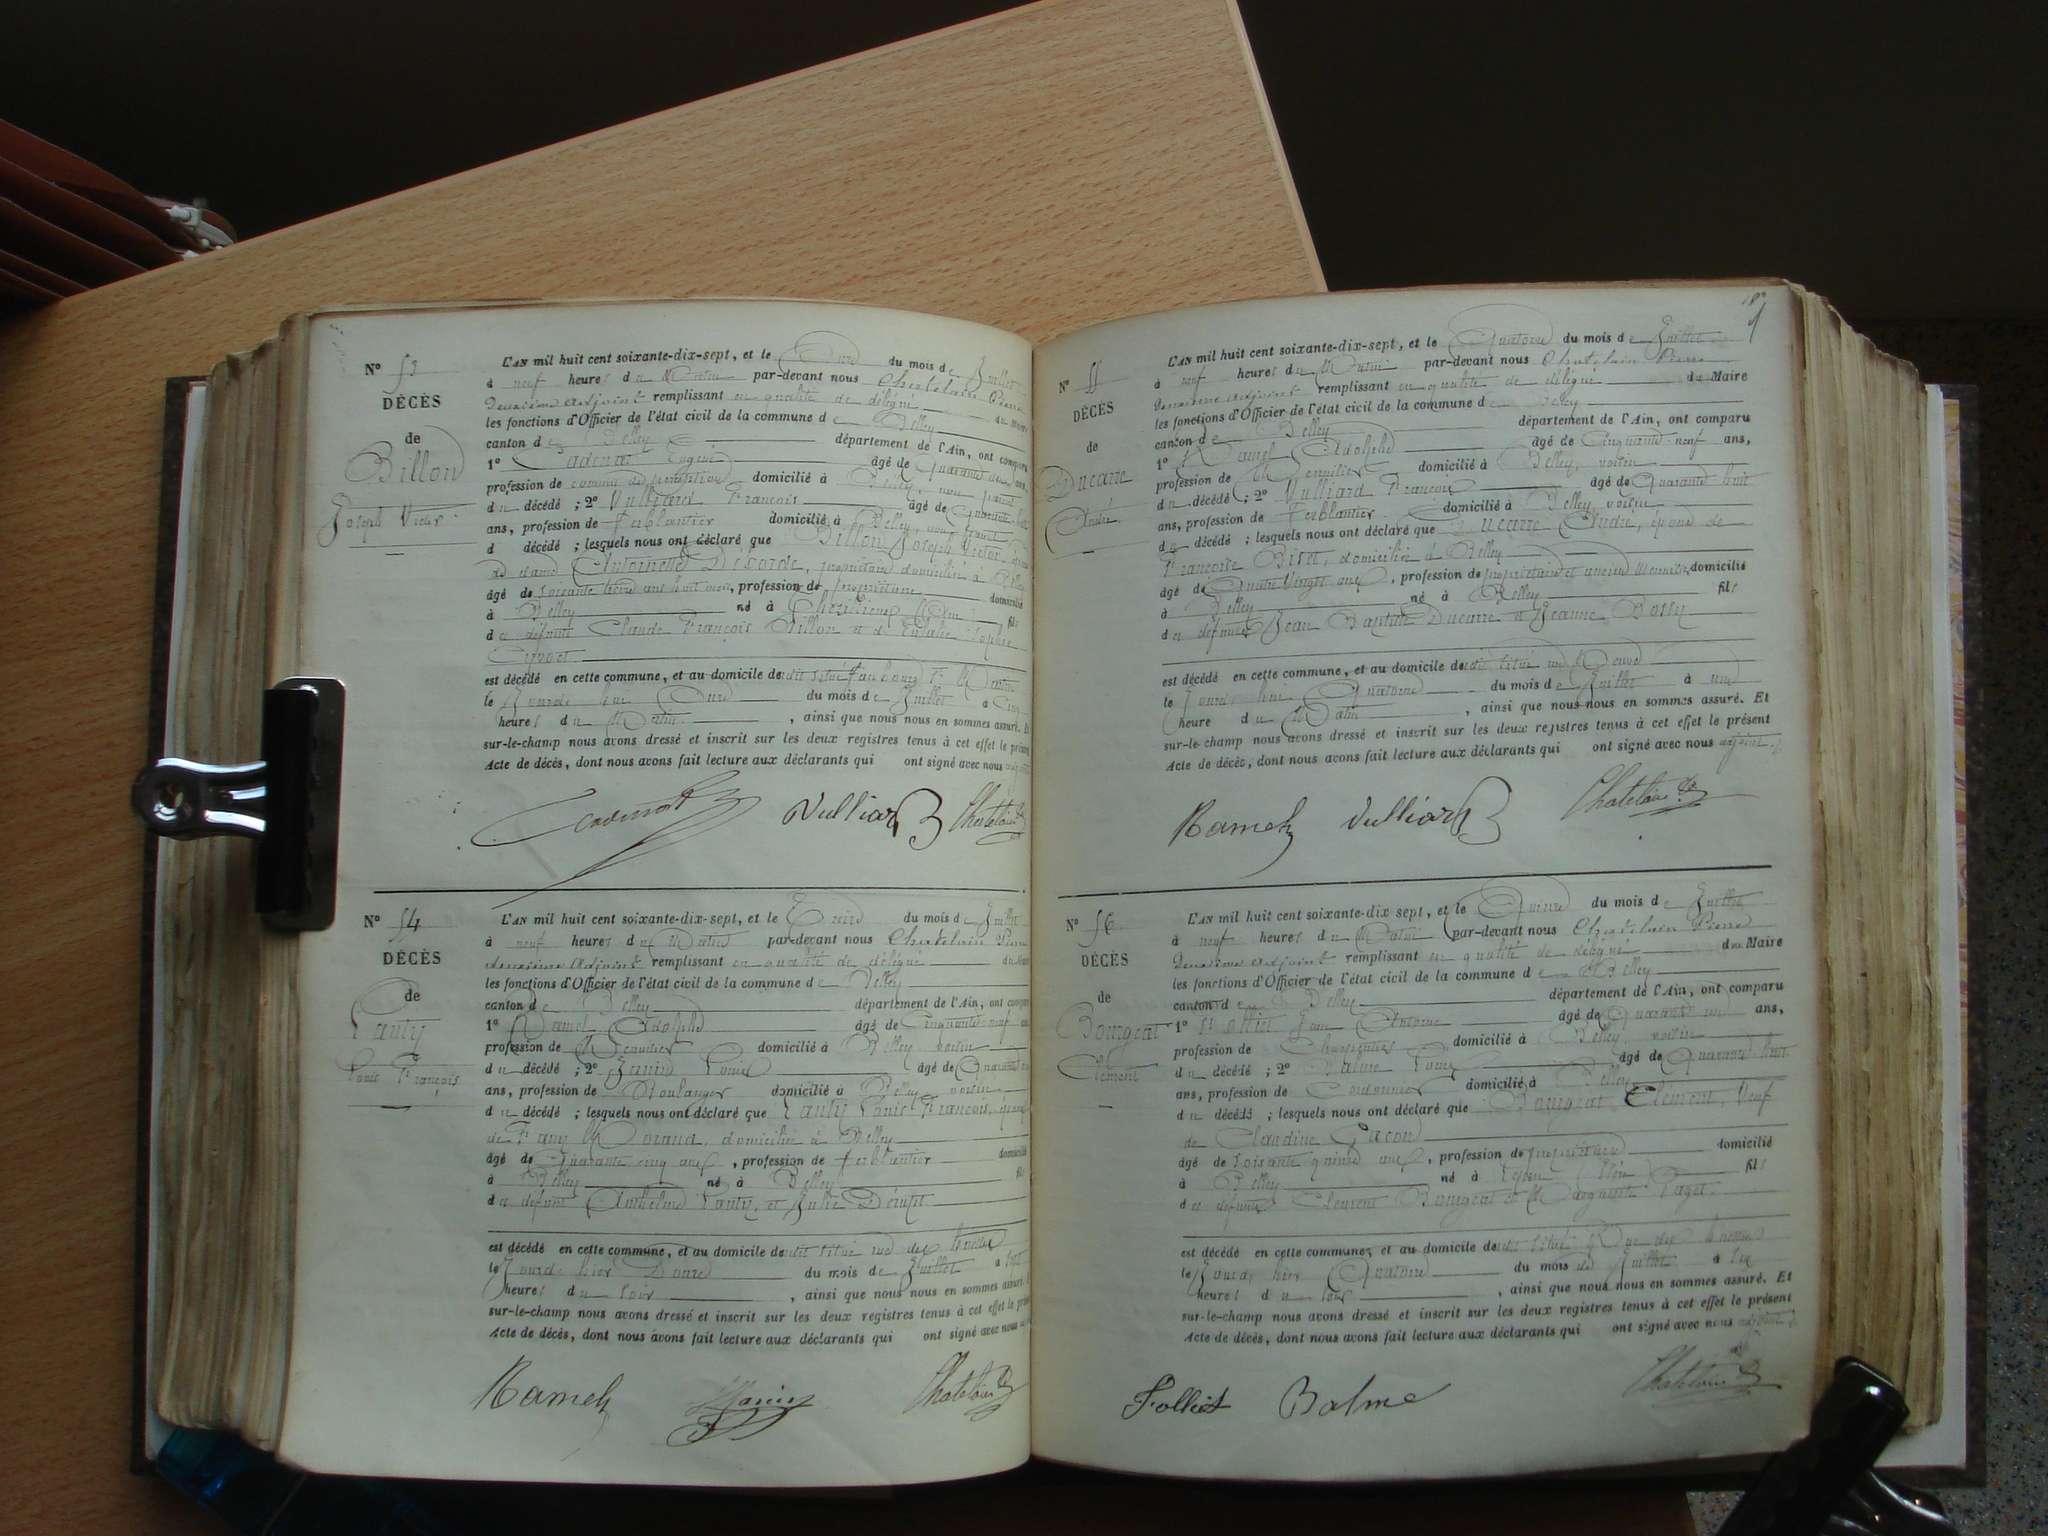 N° 53
DÉCÈS
de
Billon
Joseph Victor
L'AN mil huit cent soixante-dix-sept, et le Onze du mois de Juillet
à neuf heures du Matin par-devant nous Chatelain Pierre
Deuxième Adjoint remplissant en qualité de délégué du Maire
les fonctions d'Officier de l'état civil de la commune de Belley
canton de Belley département de l'Ain, ont comparu
1° Cadenat Eugène âgé de Quarante deux ans,
profession de commis de perception domicilié à Belley, non parent
du décédé ; 2° Vulliard François âgé de Quarante huit
ans, profession de Ferblantier domicilié à Belley, non parent
d décédé ; lesquels nous ont déclaré que Billon Joseph Victor, époux
de dame Antoinette Désorde, propriétaire domicilié à Belley
âgé de soixante ans huit mois, profession de propriétaire domicilié
à Belley né à (Ain) fils
de défunts Claude François Billon et d' Eulalie Sophie
est décédé en cette commune, et au domicile dudit situé faubourg St Martin
le Jourde hui Onze du mois de Juillet à Cinq
heures du Matin , ainsi que nous nous en sommes assuré. Et
sur-le-champ nous avons dressé et inscrit sur les deux registres tenus à cet effet le présent
Acte de décès, dont nous avons fait lecture aux déclarants qui ont signé avec nous
Vulliard Chatelain
N° 54
DÉCÈS
de
Lauty
Louis François
L'AN mil huit cent soixante-dix-sept, et le Treize du mois de Juillet
à neuf heures du Matin par-devant nous Chatelain Pierre
deuxième Adjoint remplissant en qualité de délégué du Maire
les fonctions d'Officier de l'état civil de la commune de Belley
canton de Belley département de l'Ain, ont comparu
1° Ramel Adolphe âgé de Cinquante neuf ans
profession de Menuisier domicilié à Belley voisin
du décédé ; 2° Janin Louis âgé de Quarante
ans, profession de Boulanger domicilié à Belley voisin
du décédé ; lesquels nous ont déclaré que Lauty Louis François, époux
de Fany Morand, domicilié à Belley
âgé de Quarante cinq ans , profession de ferblantier domicilié
à Belley né à Belley fils
de défunt Anthelme Lauty, et Julie
est décédé en cette commune, et au domicile dudit situé rue des
le Jourde hier Douze du mois de Juillet à sept
heures du soir , ainsi que nous nous en sommes assuré. Et
sur-le-champ nous avons dressé et inscrit sur les deux registres tenus à cet effet le présent
Acte de décès, dont nous avons fait lecture aux déclarants qui ont signé avec nous
Ramel Janin Chatelain
N° 55
DÉCÈS
de
Ducarre
André
L'AN mil huit cent soixante-dix-sept, et le Quatorze du mois de Juillet
à neuf heures du Matin par-devant nous Chatelain Pierre
Deuxième Adjoint remplissant en qualité de délégué du Maire
les fonctions d'Officier de l'état civil de la commune de Belley
canton de Belley département de l'Ain, ont comparu
1° Ramel Adolphe âgé de Cinquante neuf ans,
profession de Menuisier domicilié à Belley, voisin
du décédé ; 2° Vulliard François âgé de Quarante huit
ans, profession de Ferblantier domicilié à Belley voisin
du décédé ; lesquels nous ont déclaré que Ducarre André, époux de
Françoise Biset, domicilié à Belley
âgé de Quatre Vingts ans , profession de propriétaire et ancien Meunier domicilié
à Belley né à Belley fils
de défunts Jean Baptiste Ducarre et Jeanne Bossy
est décédé en cette commune, et au domicile dudit situé rue Neuve
le Jourde hui Quatorze du mois de Juillet à une
heure du Matin , ainsi que nous nous en sommes assuré. Et
sur-le-champ nous avons dressé et inscrit sur les deux registres tenus à cet effet le présent
Acte de décès, dont nous avons fait lecture aux déclarants qui ont signé avec nous adjoint
Ramel Vulliard Chatelain
N° 56
DÉCÈS
de
Bourgeat
Clément
L'AN mil huit cent soixante-dix sept, et le Quinze du mois de Juillet
à neuf heures du Matin par-devant nous Chatelain Pierre
Deuxième Adjoint remplissant en qualité de délégué du Maire
les fonctions d'Officier de l'état civil de la commune de Belley
canton de Belley département de l'Ain, ont comparu
1° Folliet Jean Antoine âgé de Quarante un ans,
profession de Charpentier domicilié à Belley, voisin
du décédé ; 2° Balme Louis âgé de Quarante huit
ans, profession de Cordonnier domicilié à Belley
du décédé ; lesquels nous ont déclaré que Bourgeat Clément, Veuf
de Claudine Gacon
âgé de soixante quinze ans , profession de propriétaire domicilié
à Belley né à (Isère) fils
de défunts Clément Bourgeat et Marguerite Paget
est décédé en cette commune, et au domicile dudit situé Rue des
le Jourde hier Quatorze du mois de Juillet à six
heures du soir , ainsi que nous nous en sommes assuré. Et
sur-le-champ nous avons dressé et inscrit sur les deux registres tenus à cet effet le présent
Acte de décès, dont nous avons fait lecture aux déclarants qui ont signé avec nous adjoint
Folliet Balme Chatelain